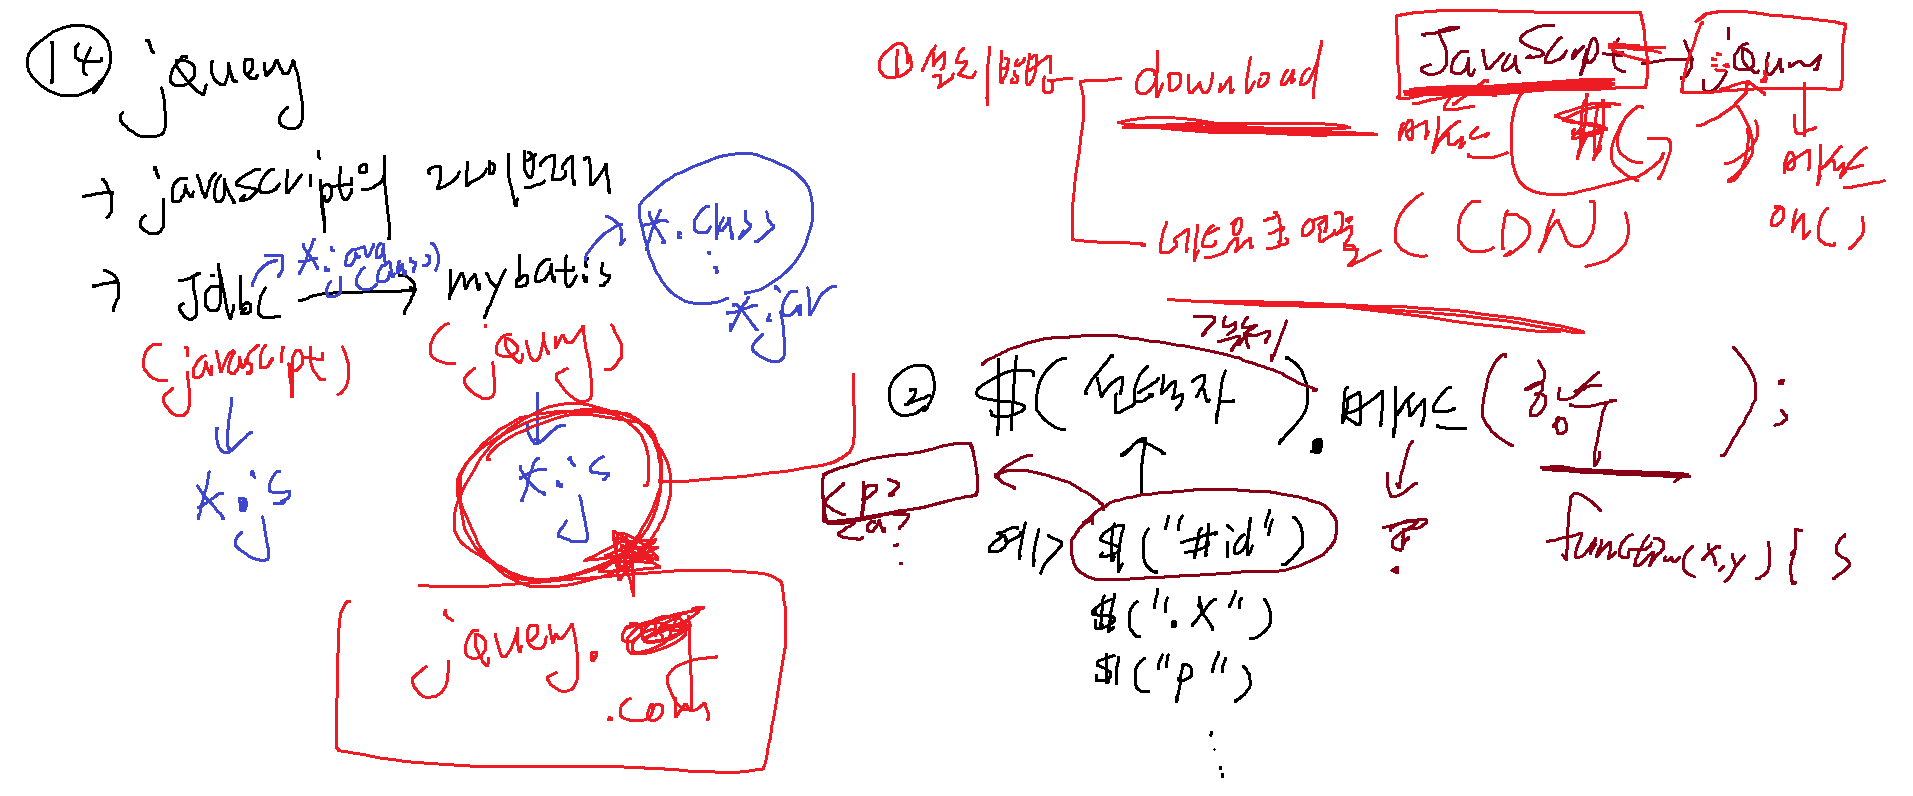 14 jQuery
→ javascript의 라이브러리
→ Jdbc → mybatis
*.java
(class)
*.class
⋮
*.jar
(javascript)
(jQuery)
*.js
*.js
jquery.
.com
① 설치방법
download
네트워크 연결 (CDN)
JavaScript → jQuery
메서드
$( )
메서드
on()
② $(선택자).메서드(함수);
<p>
<a>
⋮
예) $("#id")
$(".x")
$("p")
⋮
function(x,y){ }